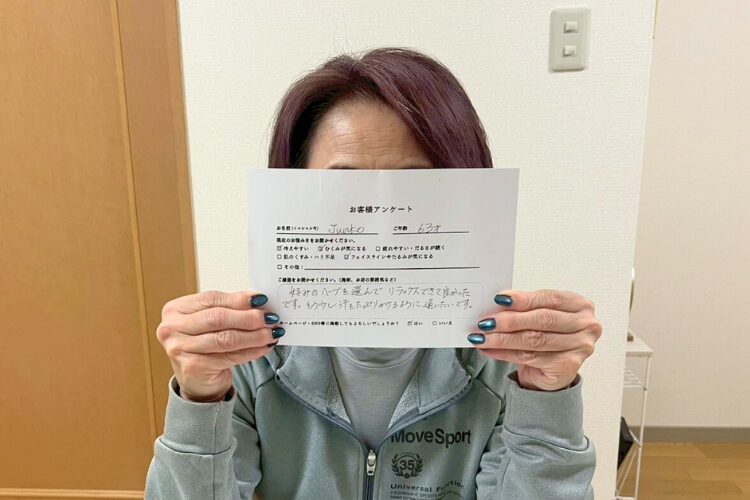 お客様アンケート
お名前(イニシャル可) Junko ご年齢 63才
現在のお悩みををお聞かせください。
☑冷えやすい ☑むくみが気になる ☐疲れやすい・だるさが続く
☐肌のくすみ・ハリ不足 ☑フェイスラインやたるみが気になる
☐その他:
ご感想をお聞かせください。(施術、お店の雰囲気など)
好みのハーブを選んで リラックスできて良かった
です。もう少し汗をたっぷりかけるように 通いたいです。
ホームページ・SNS等に掲載してもよろしいでしょうか? ☑はい ☐いいえ
MoveSport
35
Universal Function